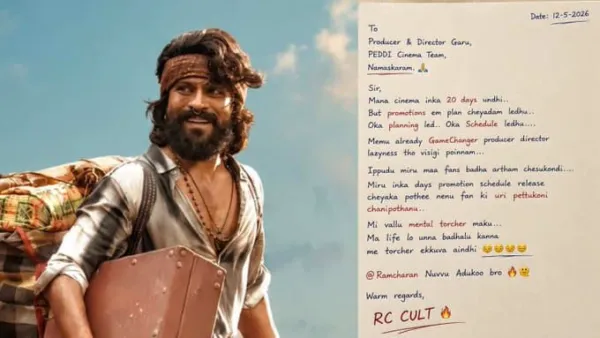 Date: 12-5-2026
To
Producer & Director Garu,
PEDDI Cinema Team,
Namaskaram. 🙏
Sir,
Mana cinema inka 20 days undhi..
But promotions em plan cheyadam ledhu..
Oka planning led.. Oka Schedule ledhu....
Memu already GameChanger producer director
lazyness tho visigi poinnam...
Ippudu miru maa fans badha artham chesukondi....
Miru inka days promotion schedule release
cheyaka pothee nenu fan ki uri pettukoni
chanipothanu..
Mi vallu mental torcher maku...
Ma life lo unna badhalu kanna
me torcher ekkuva aindhi 😔😔😔😔
@Ramcharan Nuvvu Adukoo bro 🔥🫡
Warm regards,
RC CULT 🔥